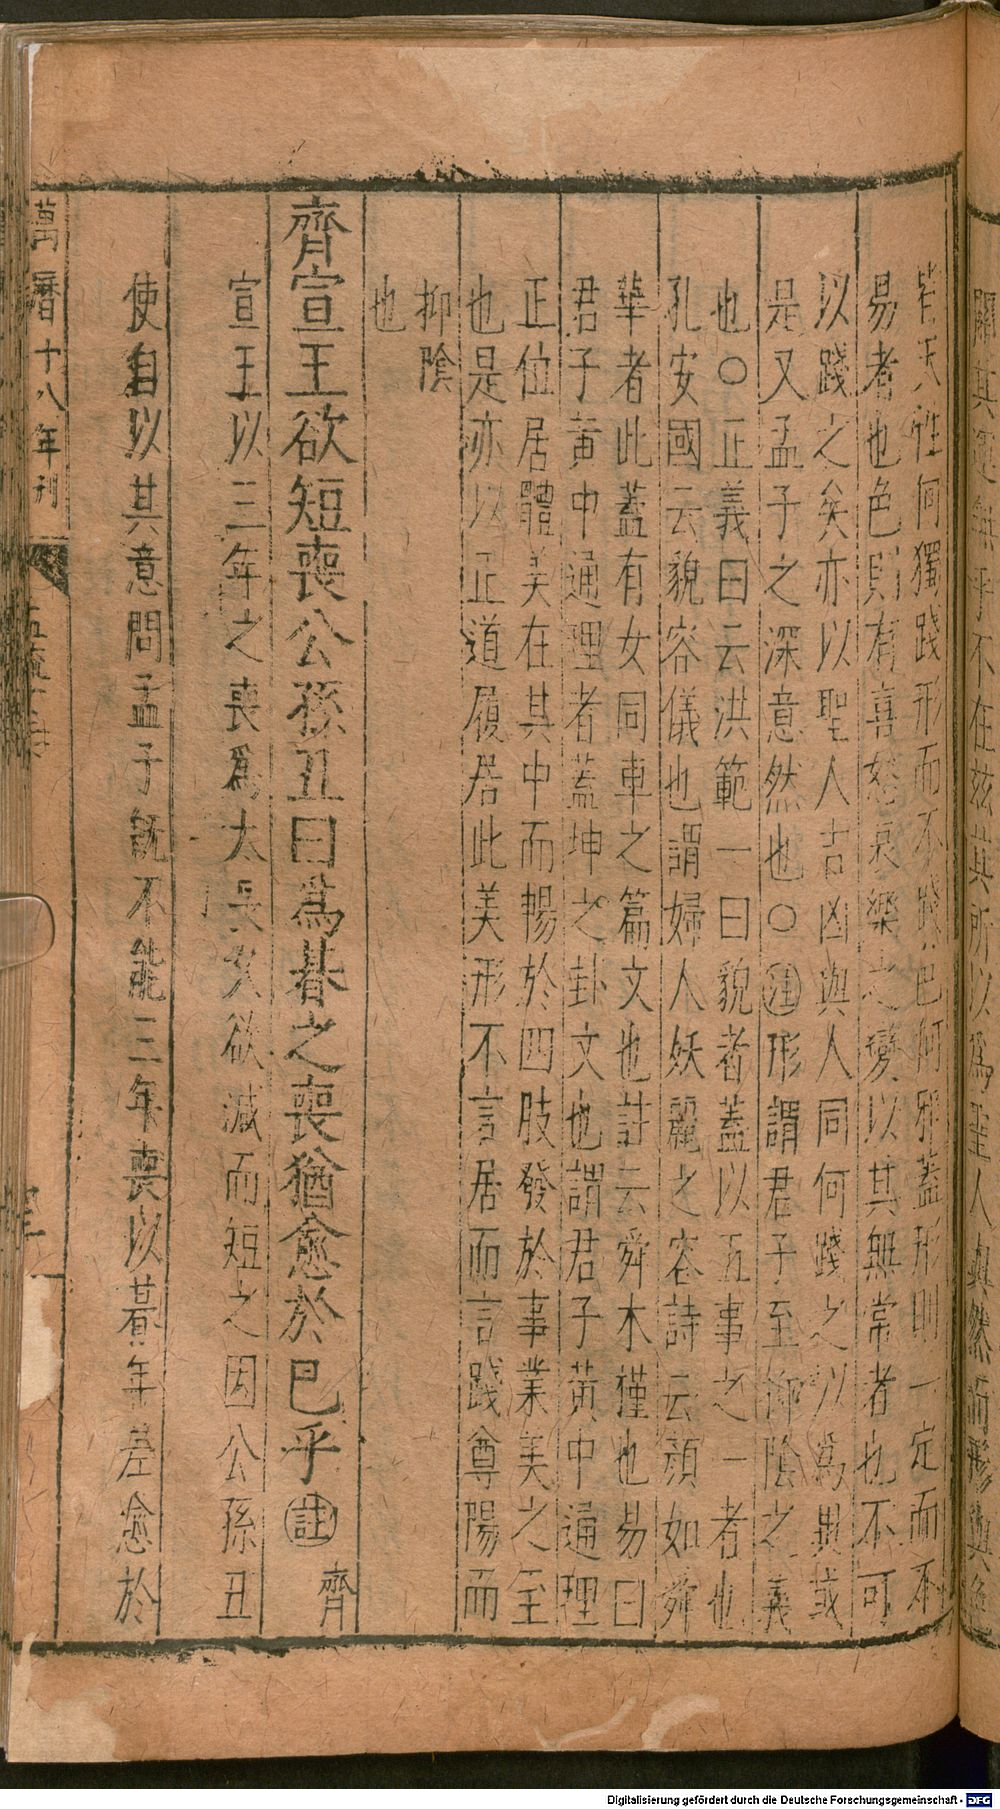 皆天性何獨踐形而不踐色何邪蓋形則一定而不
易者也色則有喜怒哀樂之變以其無常者也不可
以踐之矣亦以聖人吉凶與人同何踐之以爲異或
是又孟子之深意然也○註形謂君子至抑陰之義
也○正義曰云洪範一曰貌者蓋以五事之一者也
孔安國云貌容儀也謂婦人妖麗之容詩云顏如舜
華者此蓋有女同車之篇文也註云舜木槿也易曰
君子黃中通理者蓋坤之卦文也謂君子黃中通理
正位居體美在其中而暢於四肢發於事業美之至
也是亦以正道履居此美形不言居而言踐尊陽而
抑陰
也
齊宣王欲短喪公孫丑曰爲朞之喪猶愈於已乎註齊
宣王以三年之喪爲太長久欲減而短之因公孫丑
使自以其意問孟子旣不能三年喪以朞年差愈於
萬曆十八年刊
Digitalisierung gefördert durch die Deutsche Forschungsgemeinschaft - DFG